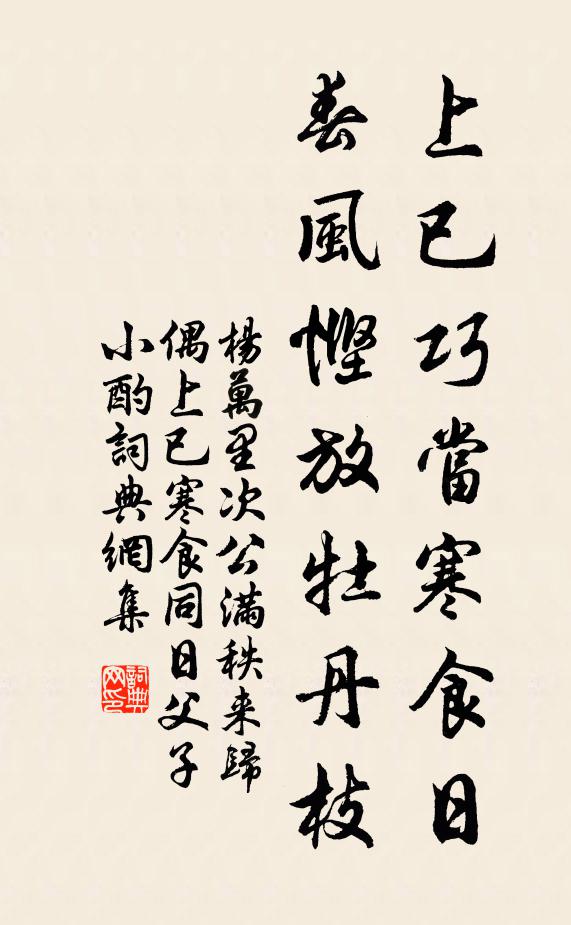 上巳巧當寒食日
春風慳放牡丹枝
楊萬里次公滿秩来歸
偶上巳寒食同日父子
小酌詞典網集
詞典
网印